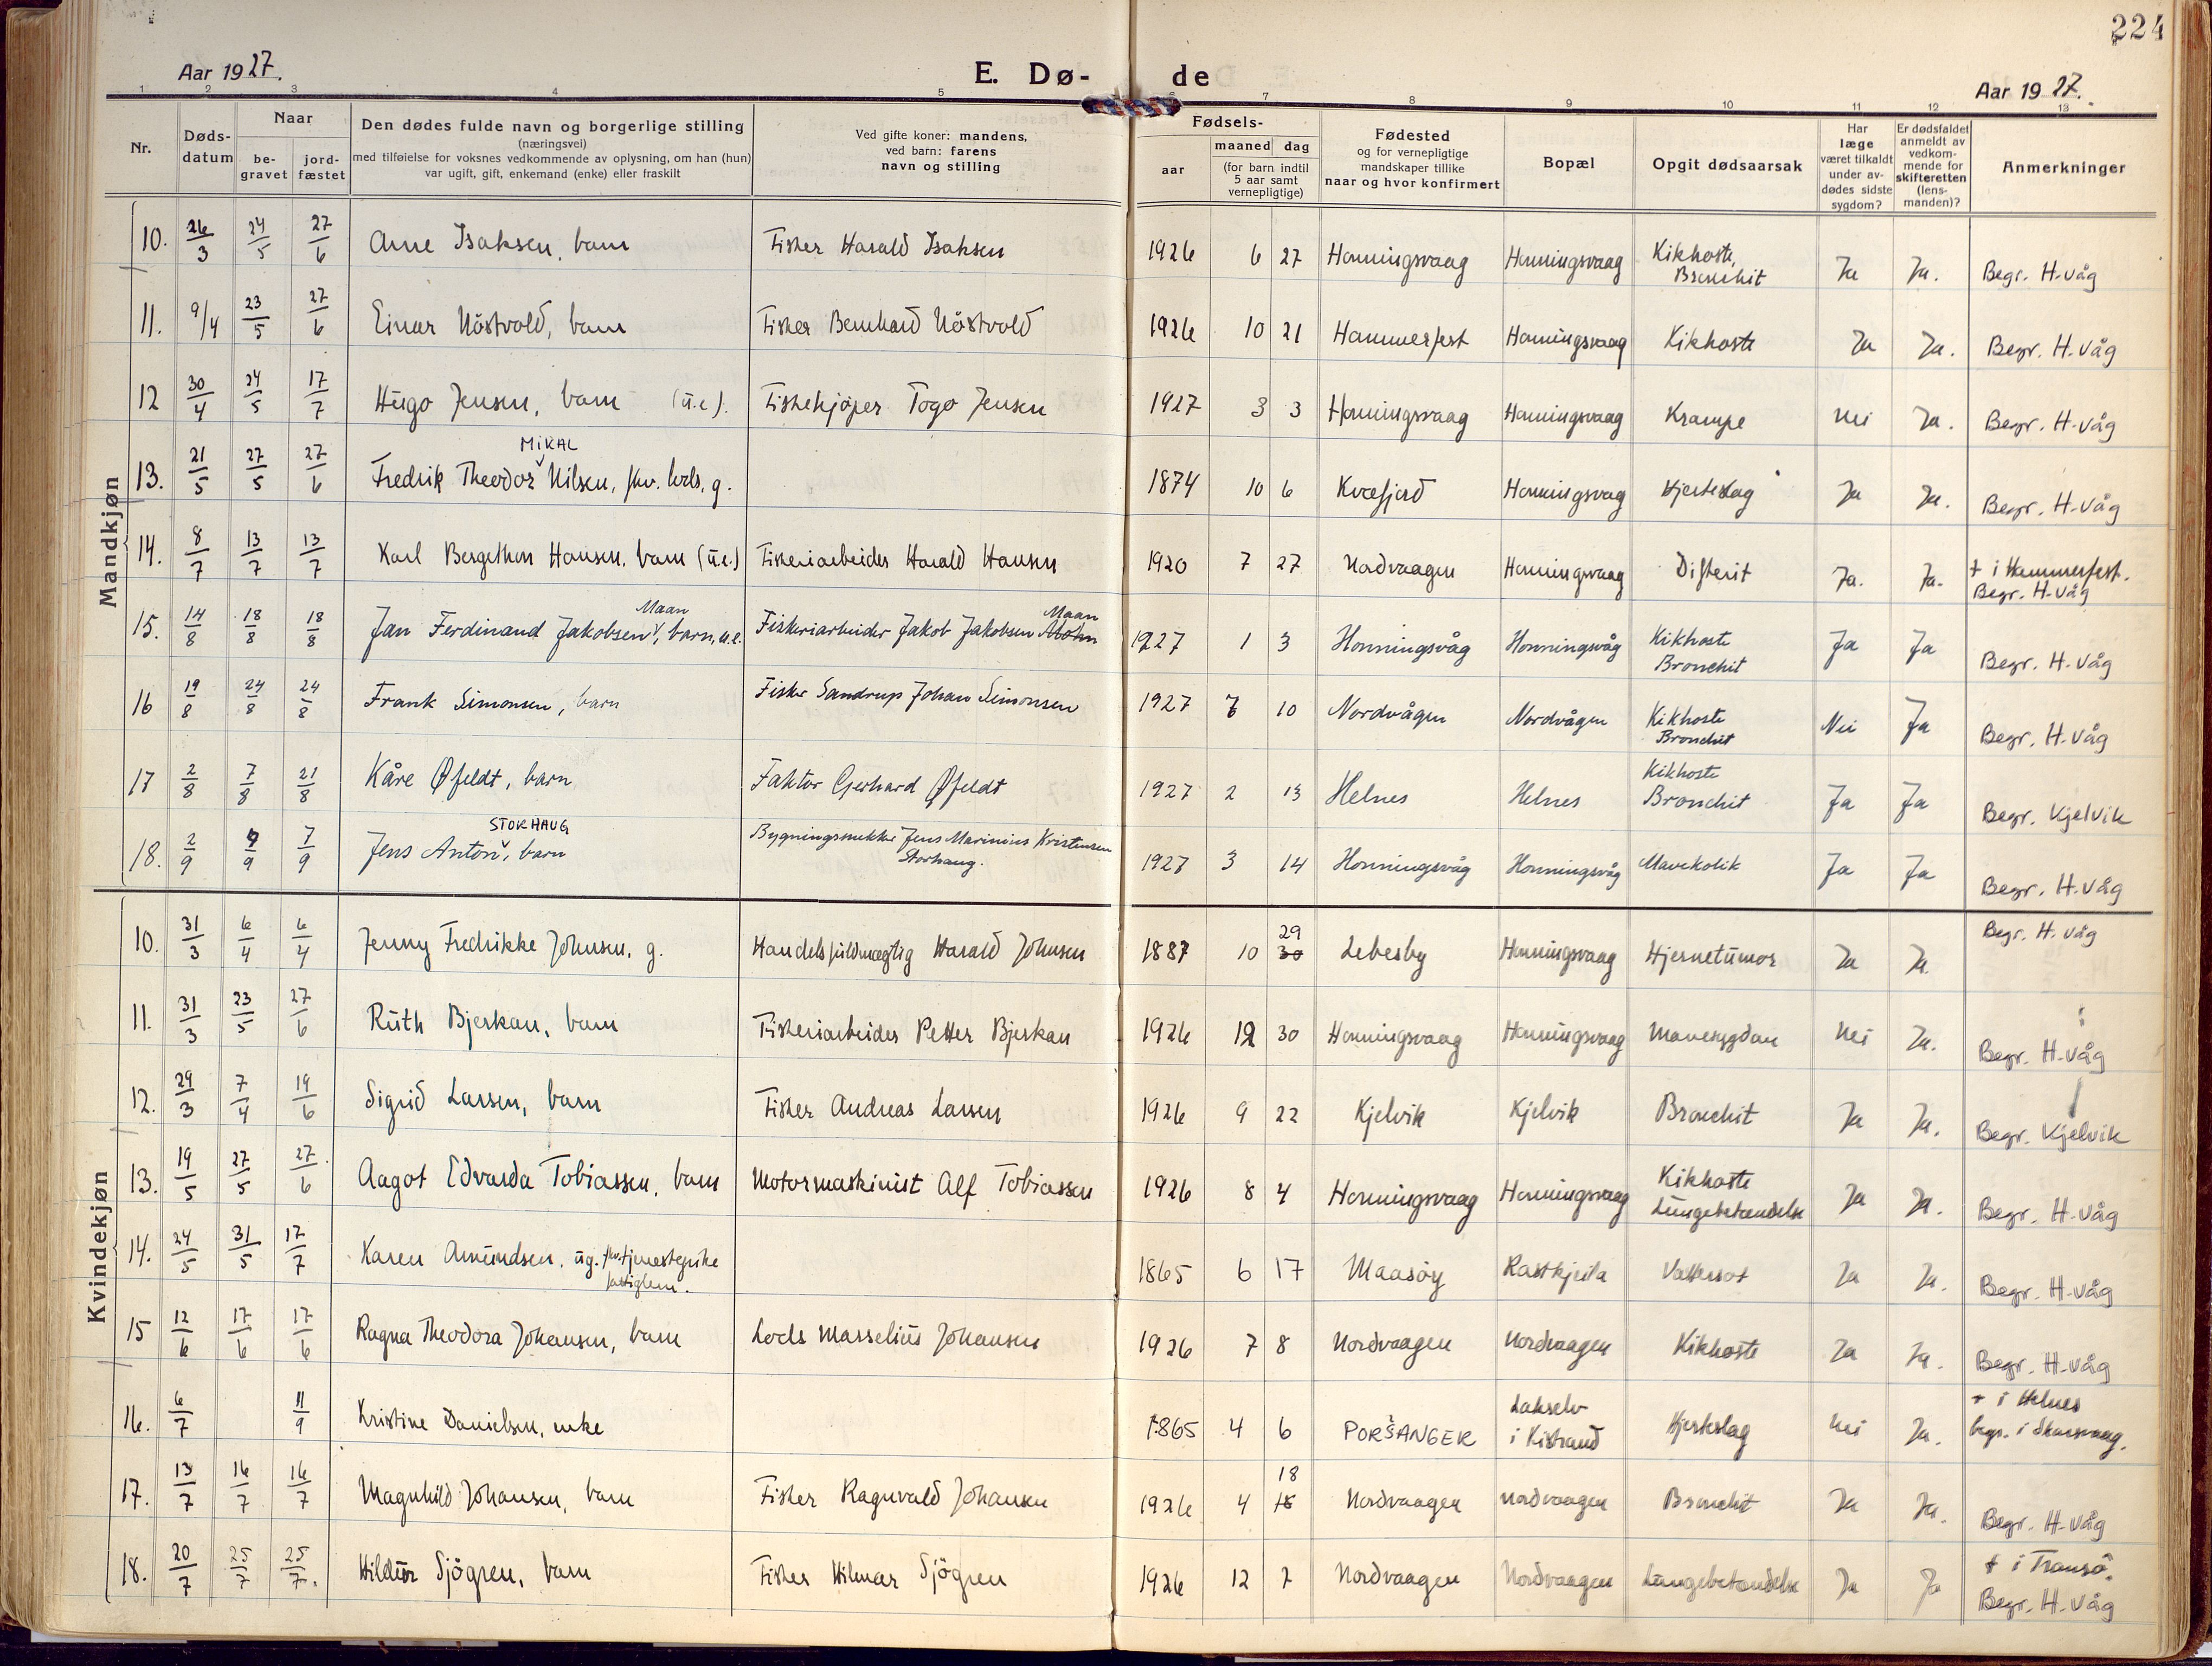 224
Aar 1927.
E. Dø- de
Aar 1927.
1 2 3 4 5 6 7 8 9 10 11 12 13
Nr. Døds-datum Naar be-gravet jord-fæstet Den dødes fulde navn og borgerlige stilling (næringsvei) med tilføielse for voksnes vedkommende av oplysning, om han (hun) var ugift, gift, enkemand (enke) eller fraskilt Ved gifte koner: mandens, ved barn: farens navn og stilling Fødsels- aar maaned dag (for barn indtil 5 aar samt vernepligtige) Fødested og for vernepligtige mandskaper tillike naar og hvor konfirmert Bopæl Opgit dødsaarsak Har læge været tilkaldt under av-dødes sidste sygdom? Er dødsfaldet anmeldt av vedkom-mende for skifteretten (lens-manden)? Anmerkninger
Mandkjøn
10. 26/3 24/5 27/6 Arne Isaksen, barn Fisker Harald Isaksen 1926 6 27 Honningsvaag Honningsvaag Kikhoste, Bronchit Ja Ja. Begr. H-våg
11. 9/4 23/5 27/6 Einar Nöstvold, barn Fisker Bernhard Nöstvold 1926 10 21 Hammerfest Honningsvaag Kikhoste Ja Ja. Begr. H-våg
12 30/4 24/5 17/7 Hugo Jensen, barn (u.e). Fiskekjöper Togo Jensen 1927 3 3 Honningsvaag Honningsvaag Krampe Nei Ja. Begr. H-våg
13. 21/5 27/5 27/6 Fredrik Theodor MIKAL Nilsen, fhv. lods, g. 1874 10 6 Kvæfjord Honningsvaag Hjerteslag Ja Ja. Begr. H-våg
14. 8/7 13/7 13/7 Karl Bergethon Hansen, barn (u.e.) Fiskeriarbeider Harald Hansen 1920 7 27 Nordvaagen Honningsvaag Difterit Ja. Ja. + i Hammerfest. Begr. H-våg
15. 14/8 18/8 18/8 Jan Ferdinand Jakobsen Maan, barn, u.e. Fiskeriarbeider Jakob Jakobsen Maan 1927 1 3 Honningsvåg Honningsvåg Kikhoste Bronchit Ja Ja Begr. H-våg
16 19/8 24/8 24/8 Frank Simonsen, barn Fisker Sandrup Johan Simonsen 1927 7 10 Nordvågen Nordvågen Kikhoste Bronchit Nei Ja Begr. H-våg
17 2/8 7/8 21/8 Kåre Øfeldt, barn Faktor Gerhard Øfeldt 1927 2 13 Helnes Helnes Kikhoste Bronchit Ja Ja Begr. Kjelvik
18. 2/9 7/9 7/9 Jens Anton STORHAUG, barn Bygningssnekker Jens Marinius Kristensen Storhaug. 1927 3 14 Honningsvåg Honningsvåg Mavekolik Ja Ja Begr. H-våg
Kvindekjøn
10. 31/3 6/4 6/4 Jenny Fredrikke Johnsen, g. Handelsfuldmægtig Harald Johnsen 1887 10 29 30 Lebesby Honningsvaag Hjernetumor Ja Ja. Begr. H-våg
11. 31/3 23/5 27/6 Ruth Bjerkan, barn Fiskeriarbeider Petter Bjerkan 1926 12 30 Honningsvaag Honningsvaag Mavesygdom Nei Ja. Begr. H-våg
12. 29/3 7/4 19/6 Sigrid Larsen, barn Fisker Andreas Larsen 1926 9 22 Kjelvik Kjelvik Bronchit Ja Ja. Begr. Kjelvik
13. 19/5 27/5 27/6 Aagot Edvarda Tobiassen, barn Motormaskinist Alf Tobiassen 1926 8 4 Honningsvaag Honningsvaag Kikhoste Lungebetændelse Ja Ja. Begr. H-våg
14. 24/5 31/5 17/7 Karen Amundsen, ug. fhv. tjenestepike fattiglem. 1865 6 17 Maasöy Rastkjeila Vattersot Ja Ja. Begr. H-våg
15 12/6 17/6 17/6 Ragna Theodora Johansen, barn Lods Masselius Johansen 1926 7 8 Nordvaagen Nordvaagen Kikhoste Ja Ja. Begr. H-våg
16. 6/7 11/9 Kristine Danielsen, enke 1865 4 6 PORSANGER Lakselv i Kistrand Hjerteslag Nei Ja. + i Helnes begr. i Skarsvaag.
17. 13/7 16/7 16/7 Magnhild Johansen, barn Fisker Ragnvald Johansen 1926 4 18 15 Nordvaagen Nordvaagen Bronchit Ja Ja. Begr. H-våg
18. 20/7 25/7 25/7. Hildur Sjögren, barn Fisker Hilmar Sjögren 1926 12 7 Nordvaagen Nordvaagen Lungebetændelse Ja Ja + i Tromsö. Begr. H-våg